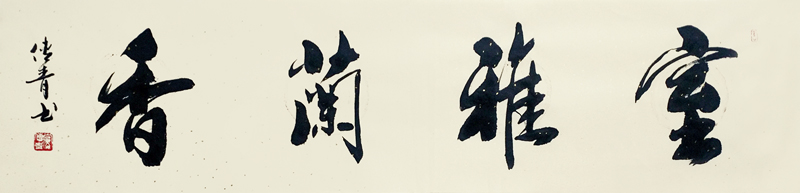 室雅蘭香
青书